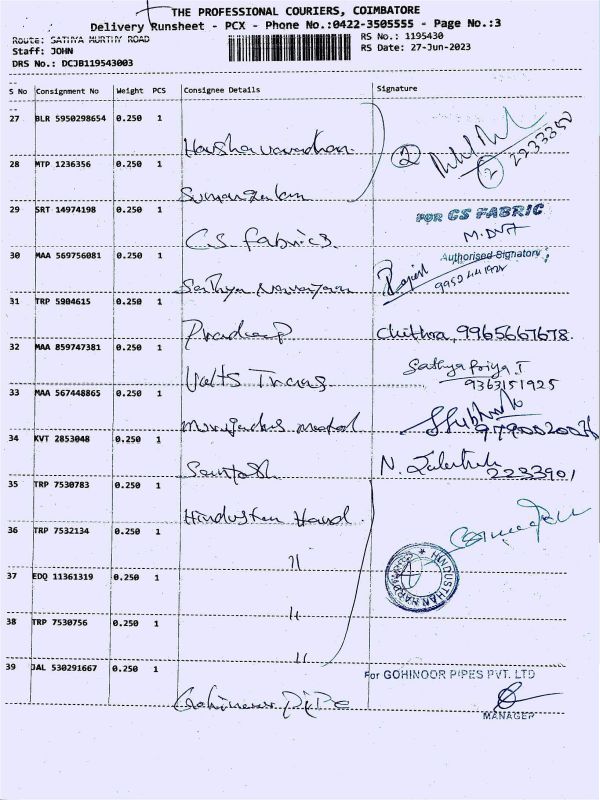 THE PROFESSIONAL COURIERS, COIMBATORE
Delivery Runsheet - PCX - Phone No.:0422-3505555 - Page No.:3
Route: SATHYA MURTHY ROAD
RS No.: 1195430
Staff: JOHN
RS Date: 27-Jun-2023
DRS No.: DCJB119543003
S No Consignment No Weight PCS Consignee Details Signature
27 BLR 5950298654 0.250 1
Harshavardhan 2
2 2233350
28 MTP 1236356 0.250 1
Sumangalam
29 SRT 14974198 0.250 1
FOR CS FABRIC
CS Fabrics
M.DIVYA
30 MAA 569756081 0.250 1
Authorised Signatory
Sathya Narrayana
Rajesh
31 TRP 5904615 0.250 1
Pradeep Chithra, 9965667678
32 MAA 859747381 0.250 1
Volts Trans Sathya Priya T
9363151925
33 MAA 567448865 0.250 1
34 KVT 2853048 0.250 1
Santosh N. 2233901
35 TRP 7530783 0.250 1
Hindustan Hard
36 TRP 7532134 0.250 1
"
37 EDQ 11361319 0.250 1
HINDUSTHAN HARDWARE
"
38 TRP 7530756 0.250 1
"
39 JAL 530291667 0.250 1
For GOHINOOR PIPES PVT. LTD
Gohinoor Pipe
MANAGER